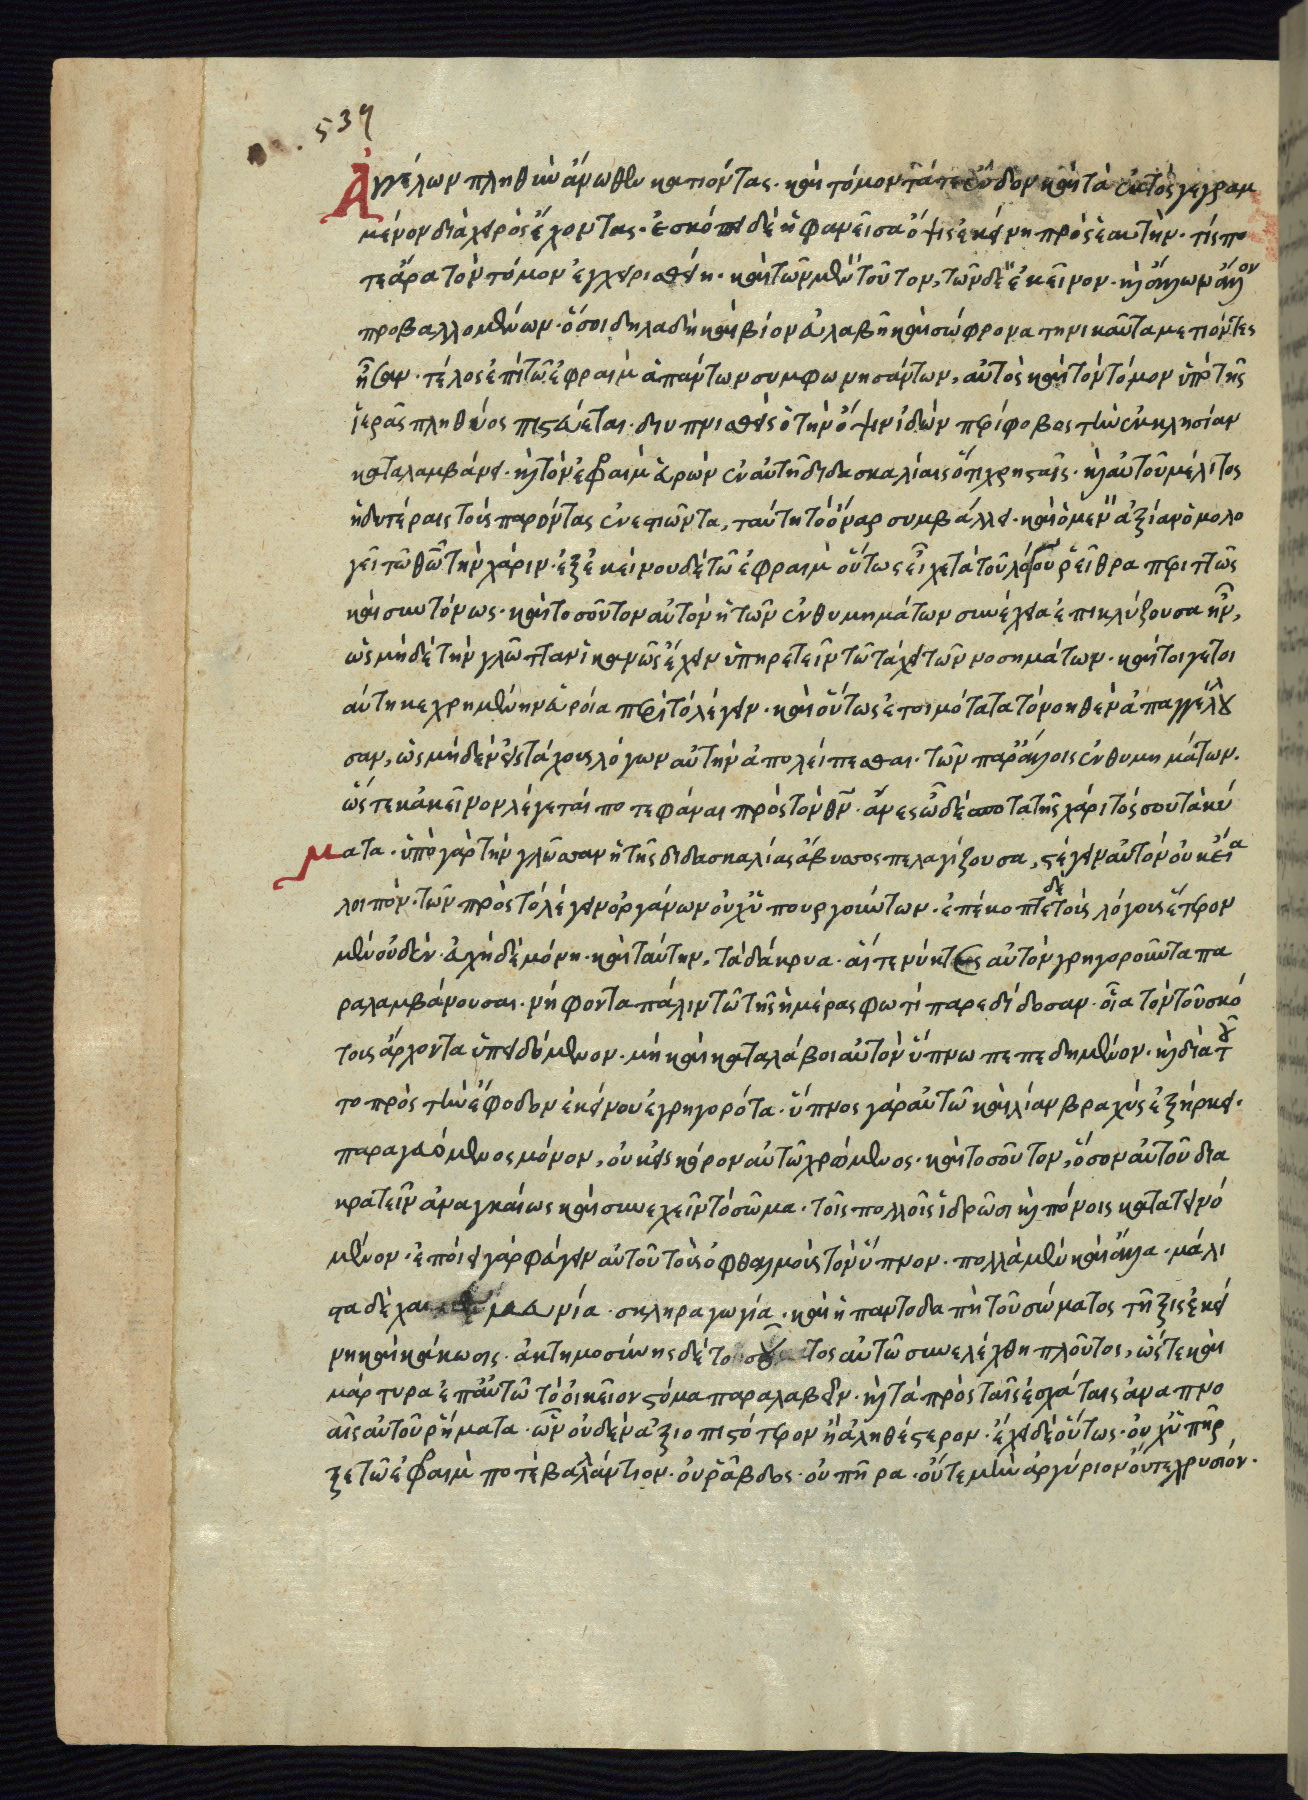 539
Ἀγγέλων πληθὺν ἄνωθεν κατιόντας· καὶ τόμον τά τε ἔνδον καὶ τὰ ἐκτὸς γεγραμ
μένον διὰ χειρὸς ἔχοντας· ἐσκόπει δὲ ἡ φανεῖσα ὄψις ἐκείνη πρὸς ἑαυτήν· τίς πο
τε ἄρα τὸν τόμον ἐγχειρισθείη· καὶ τῶν μὲν τοῦτον, τῶν δὲ ἐκεῖνον· καὶ ἄλλων ἄλλον
προβαλλομένων· ὅσοι δηλαδὴ καὶ βίον εὐλαβῆ καὶ σώφρονα τηνικαῦτα μετιόντες
ἦσαν· τέλος ἐπὶ τῶ ἐφραὶμ ἁπάντων συμφωνησάντων, αὐτὸς καὶ τὸν τόμον ὑπὸ τῆς
ἱερᾶς πληθύος πιστεύεται· διυπνισθεὶς ὁ τὴν ὄψιν ἰδὼν περίφοβος τὴν ἐκκλησίαν
καταλαμβάνει· καὶ τὸν ἐφραὶμ εὑρὼν ἐν αὐτῆ διδασκαλίαις ὅτι χρησταῖς· καὶ αὐτοῦ μέλιτος
ἡδυτέραις τοὺς παρόντας ἐνεστιῶντα, ταύτη τὸ ὄναρ συμβάλλει· καὶ ὁ μὲν ἀξίαν ὁμολο
γεῖ τῶ θεῶ τὴν χάριν· ἐξ ἐκείνου δὲ τῶ ἐφραὶμ οὕτως εἶχε τὰ τοῦ λόγου ῥεῖθρα περιττῶς
καὶ συντόνως· καὶ τοσοῦτον αὐτὸν ἡ τῶν ἐνθυμημάτων συνέχεια ἐπικλύζουσα ἦν,
ὡς μὴ δὲ τὴν γλῶτταν ἱκανῶς ἔχειν ὑπηρετεῖν τῶ τάχει τῶν νοσημάτων· καίτοιγε τοι
αύτη κεχρημένην εὐροία περὶ τὸ λέγειν· καὶ οὕτως ἑτοιμότατα τὸ νοηθὲν ἀπαγγέλλου
σαν, ὡς μηδὲν εἰς τάχους λόγων αὐτὴν ἀπολείπεσθαι· τῶν παρ' ἄλλοις ἐνθυμημάτων·
ὥστε κἀκεῖνον λέγεταί ποτε φάναι πρὸς τὸν θν· ἄνες ὦ δέσποτα τῆς χάριτός σου τὰ κύ
ματα· ὑπὸ γὰρ τὴν γλῶσσαν ἡ τῆς διδασκαλίας ἄβυσσος πελαγίζουσα, στέγειν αὐτὸν οὐκ ἐία
λοιπόν· τῶν πρὸς τὸ λέγειν ὀργάνων οὐχ ὑπουργούντων· ἐπέκοπτε δὲ τοὺς λόγους ἕτερον
μὲν οὐδέν· εὐχὴ δὲ μόνη· καὶ ταύτην, τὰ δάκρυα· αἵ τε νύκτες αὐτὸν γρηγοροῦντα πα
ραλαμβάνουσαι· νήφοντα πάλιν τῶ τῆς ἡμέρας φωτὶ παρεδίδοσαν· οἷα τὸν τοῦ σκό
τους ἄρχοντα ὑπειδόμενον· μὴ καὶ καταλάβοι αὐτὸν ὕπνω πεπεδημένον· καὶ διὰ τοῦ
το πρὸς τὴν ἔφοδον ἐκείνου ἐγρηγορότα· ὕπνος γὰρ αὐτῶ καὶ λίαν βραχὺς ἐξήρκει·
παραγευόμενος μόνον, οὐκ εἰς κόρον αὐτῶ χρώμενος· καὶ τοσοῦτον, ὅσον αὐτοῦ δια
κρατεῖν ἀναγκαίως καὶ συνεχεῖν τὸ σῶμα· τοῖς πολλοῖς ἱδρῶσι καὶ πόνοις κατατεινό
μενον· ἐποίει γὰρ φεύγειν αὐτοῦ τοὺς ὀφθαλμοὺς τὸν ὕπνον· πολλὰ μὲν καὶ ἄλλα· μάλι
στα δὲ χαμευνία· σκληραγωγία· καὶ ἡ παντοδαπὴ τοῦ σώματος τῆξις ἐκεί
νη καὶ κάκωσις· ἀκτημοσύνης δὲ τοσοῦτος αὐτῶ συνελέχθη πλοῦτος, ὥστε καὶ
μάρτυρα ἐπ' αὐτῶ τὸ οἰκεῖον στόμα παραλαβεῖν· καὶ τὰ πρὸς ταῖς ἐσχάταις ἀναπνο
αῖς αὐτοῦ ῥήματα· ὧν οὐδὲν ἀξιοπιστότερον ἢ ἀληθέστερον· ἔχει δὲ οὕτως· οὐχ ὑπῆρ
ξε τῶ ἐφραὶμ ποτὲ βαλάντιον· οὐ ῥάβδος· οὐ πῆρα· οὔτε μὴν ἀργύριον οὔτε χρυσίον·